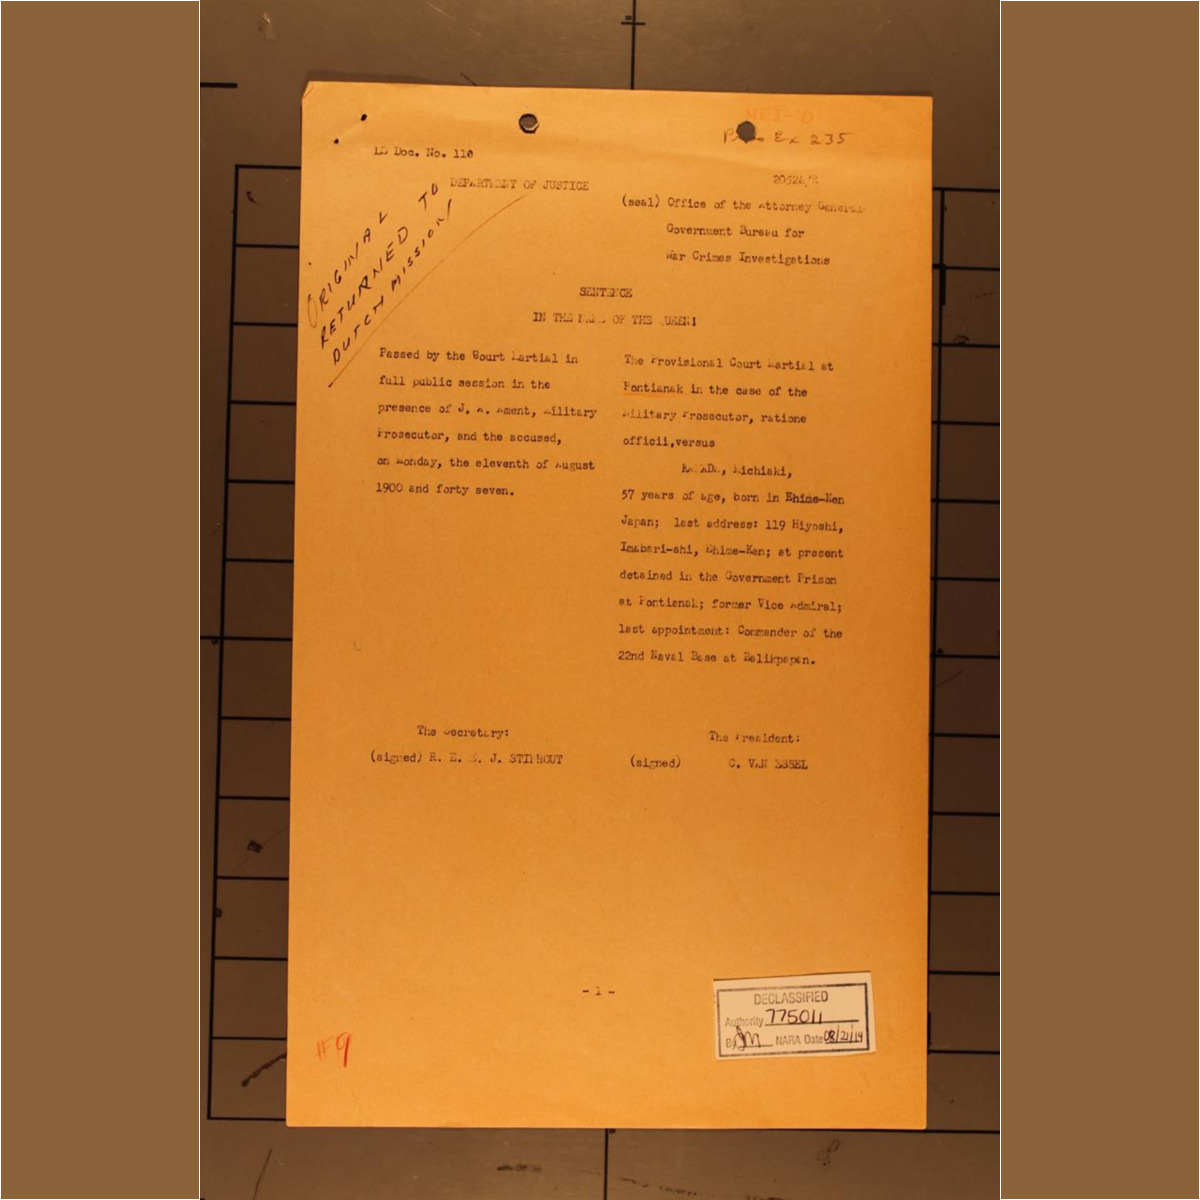 Pros Ex 235
LS Doc. No. 110
20524/R
DEPARTMENT OF JUSTICE
(seal) Office of the Attorney General-
Government Bureau for
War Crimes Investigations
ORIGINAL
RETURNED TO
DUTCH MISSION
SENTENCE
IN THE NAME OF THE QUEEN!
Passed by the Court Martial in
full public session in the
presence of J. ment, Military
Prosecutor, and the accused,
on Monday, the eleventh of August
1900 and forty seven.
The Provisional Court Martial at
Pontianak in the case of the
Military Prosecutor, ratione
officii,versus
KAMADA, Michiaki,
57 years of age, born in Ehime-Ken
Japan; last address: 119 Hiyoshi,
Imabari-shi, Ehime-Ken; at present
detained in the Government Prison
at Pontianak; former Vice Admiral;
last appointment: Commander of the
22nd Naval Base at Balikpapan.
The Secretary:
(signed) R. E. J. STILHOUT
The President:
(signed) C. VAN ESSEL
- 1 -
DECLASSIFIED
Authority 775011
By JM NARA Date 08/21/19
#9